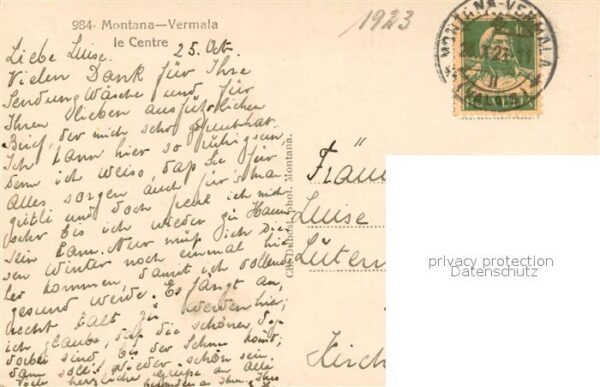 984- Montana—Vermala
le Centre
1923
MONTANA-VERMALA
Liebe Luise. 25. Oct.
Vielen Dank für Ihre
Sendung Wäsche und für
Ihren lieben ausführlichen
Brief, der mich sehr gefreut hat.
Ich kann hier so ruhig sein,
denn ich weiss, daß Sie für
alles sorgen auch für's
und doch freue ich mich
sehr bis ich wieder zu Hause
sein kann. Nur muß ich die-
sen Winter noch einmal hie-
her kommen, damit ich vollends
gesund werde. Es fängt an,
recht kalt zu werden hier;
ich glaube, daß die schönen Tage
vorbei sind, bis der Schnee kommt;
dann soll's wieder schön sein.
Viele herzliche Grüße an alle
Montana.
Fräu
Luise
Lütern
Kirch
privacy protection
Datenschutz